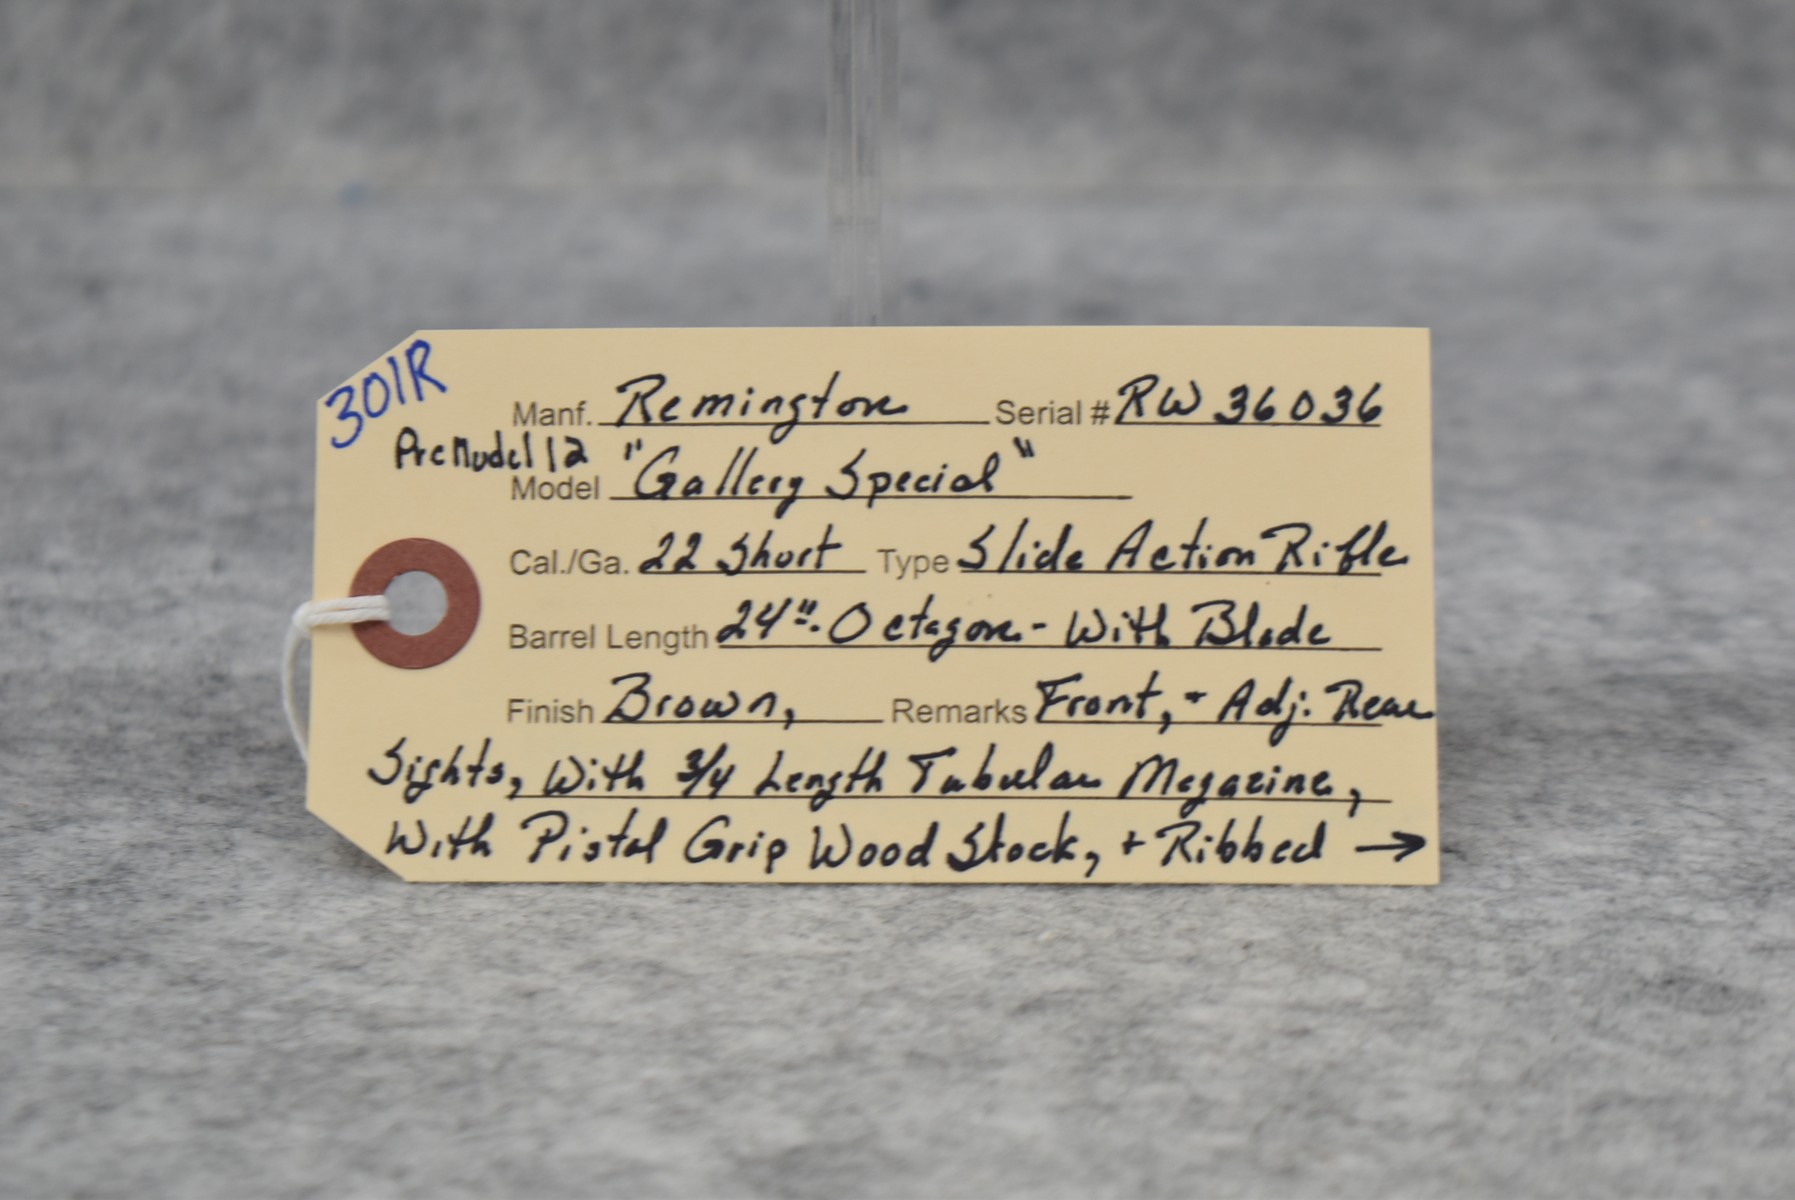 301R
Manf. Remington Serial # RW 36036
Pre Model 12
Model "Gallery Special"
Cal./Ga. 22 Short Type Slide Action Rifle
Barrel Length 24"- Octagon - With Blade
Finish Brown, Remarks Front, + Adj. Rear
Sights, With 3/4 Length Tubular Magazine,
With Pistol Grip Wood Stock, + Ribbed →